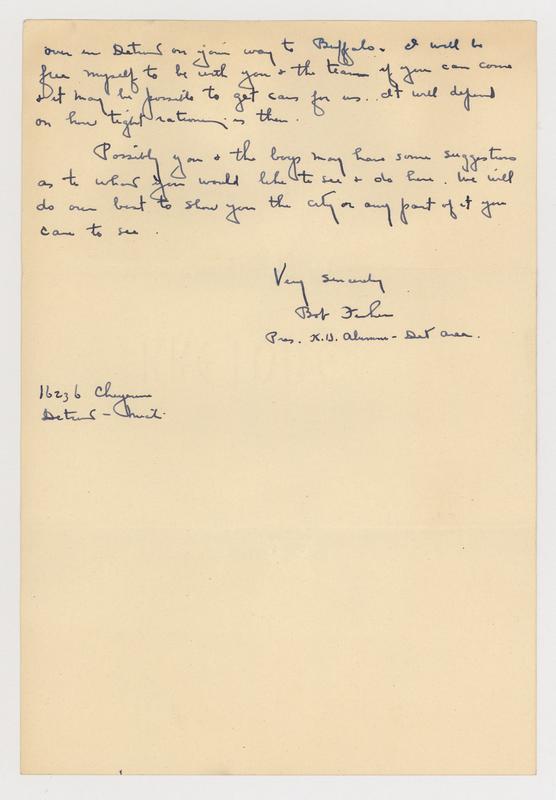 over in Detroit on your way to Buffalo. I will be
free myself to be with you & the team if you can come
& it may be possible to get cars for us. It will depend
on how tight rationing is then.
Possibly you & the boys may have some suggestions
as to what you would like to see & do here. We will
do our best to show you the city or any part of it you
care to see.
Very sincerely
Bob
Pres. K.U. Alumni - Det area.
16236 Cheyenne
Detroit - Mich.